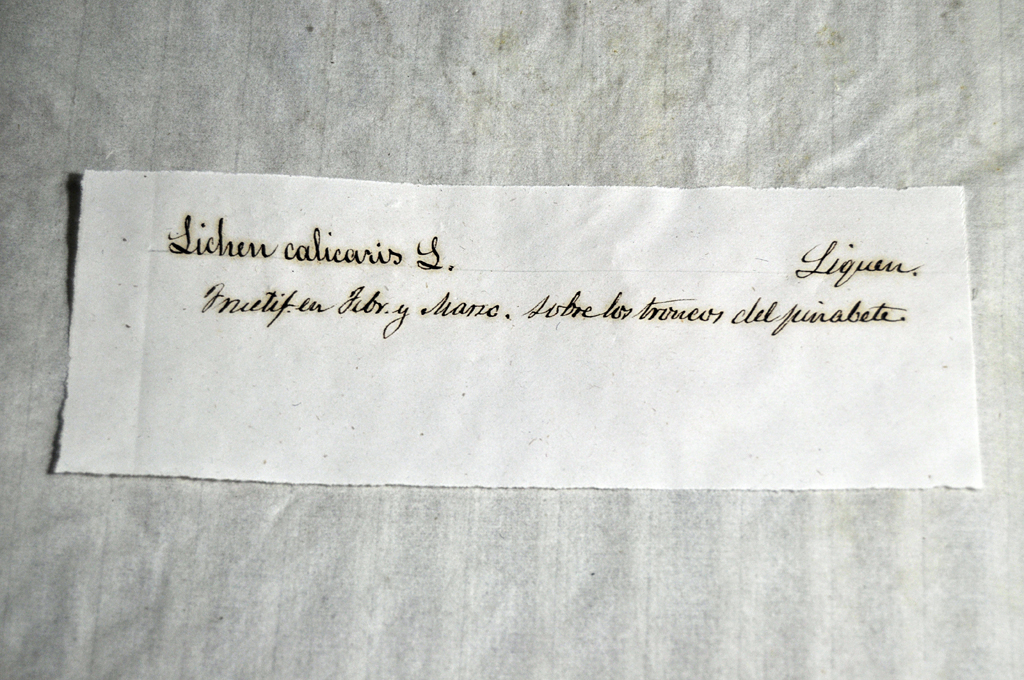 Lichen calicaris L. Liquen.
Fructif. en Febr. y Marzo. sobre los troncos del pinabete.